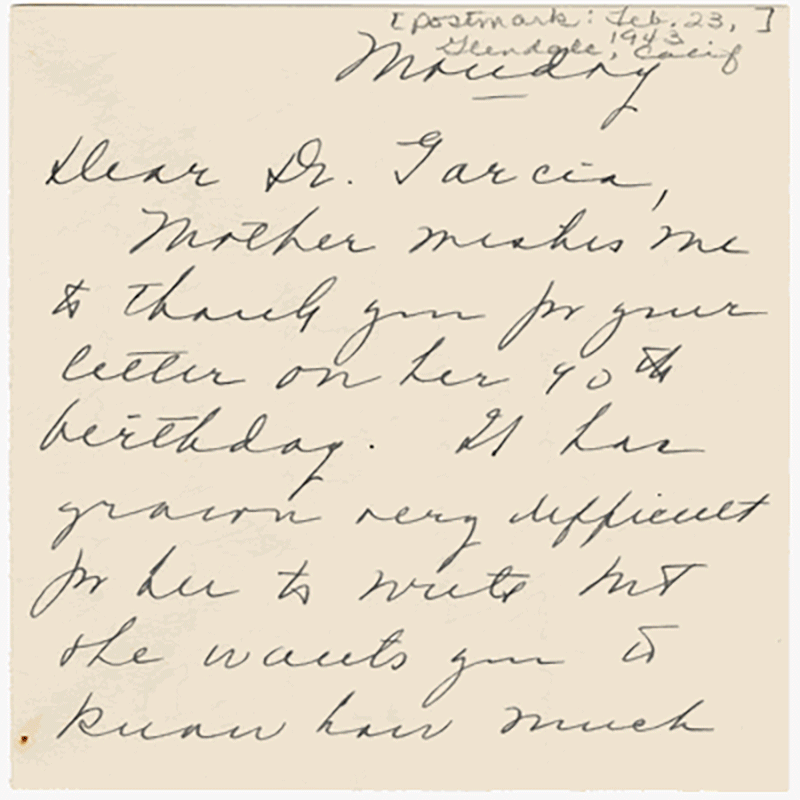 [postmark: Feb. 23, 1943
Glendale, Calif]
Monday
Dear Dr. Garcia,
Mother wishes me
to thank you for your
letter on her 90th
birthday. It has
grown very difficult
for her to write but
she wants you to
know how much